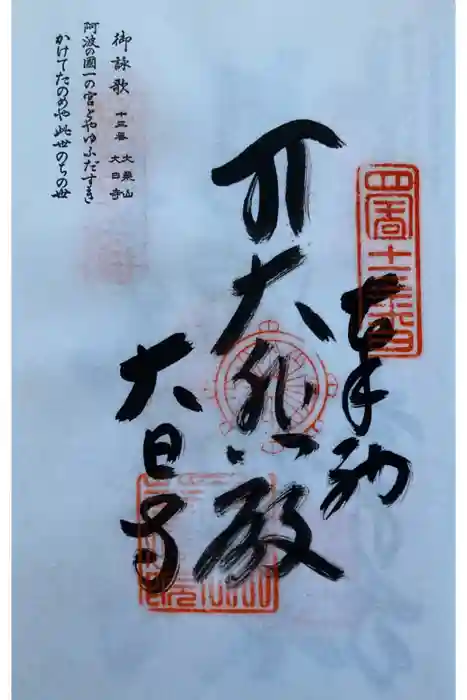 四國十三番
奉納
大悲殿
大日寺
御詠歌 十三番 大栗山 大日寺
阿波の國一の宮とやゆふだすき
かけてたのめや此世のちの世